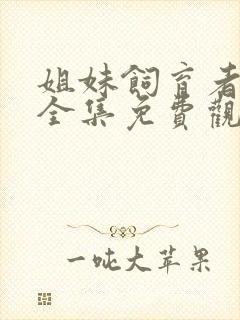 姐妹飼育者
全集免費觀
一吨大苹果